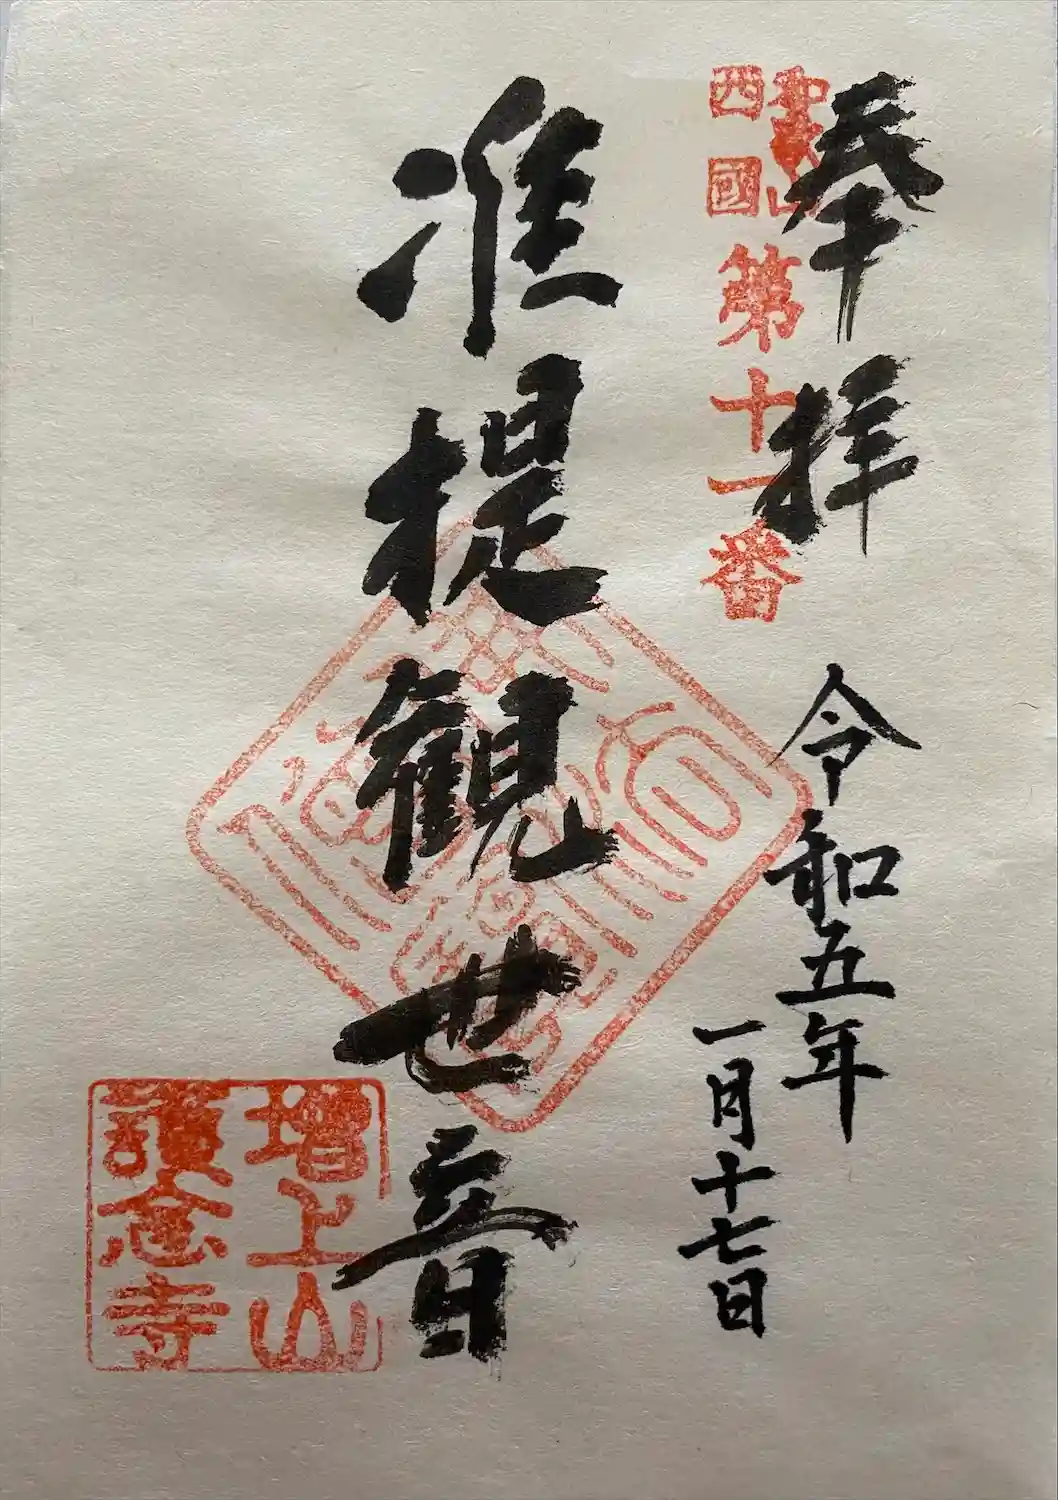 奉拝
西國
第十一番
令和五年
一月十七日
准提観世音
増上山
護念寺